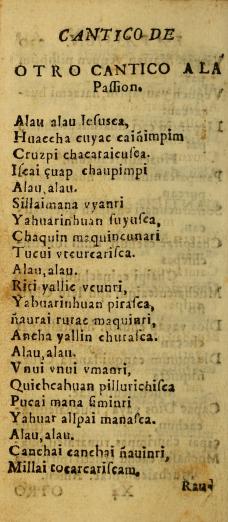 CANTICO DE
OTRO CANTICO A LA
Passion.
Alau alau Iesusca,
Huaccha cuyac caiñimpim
Cruzpi chacaraicusca.
Iscai çuap chaupimpi
Alau, alau.
Sillaimana uyanri
Yahuarinhuan suyusca,
Chaquin maquincunari
Tucui utcurcarisca.
Alau, alau.
Riti yallic ucunri,
Yahuarinhuan pirasca,
ñaurai rurac maquinri,
Ancha yallin churasca.
Alau, alau.
Vnui vnui vmanri,
Quichcahuan pillurichisca
Pucai mana siminri
Yahuar allpai manasca.
Alau, alau.
Canchai canchai ñauinri,
Millai tocarcariscam.
Raud